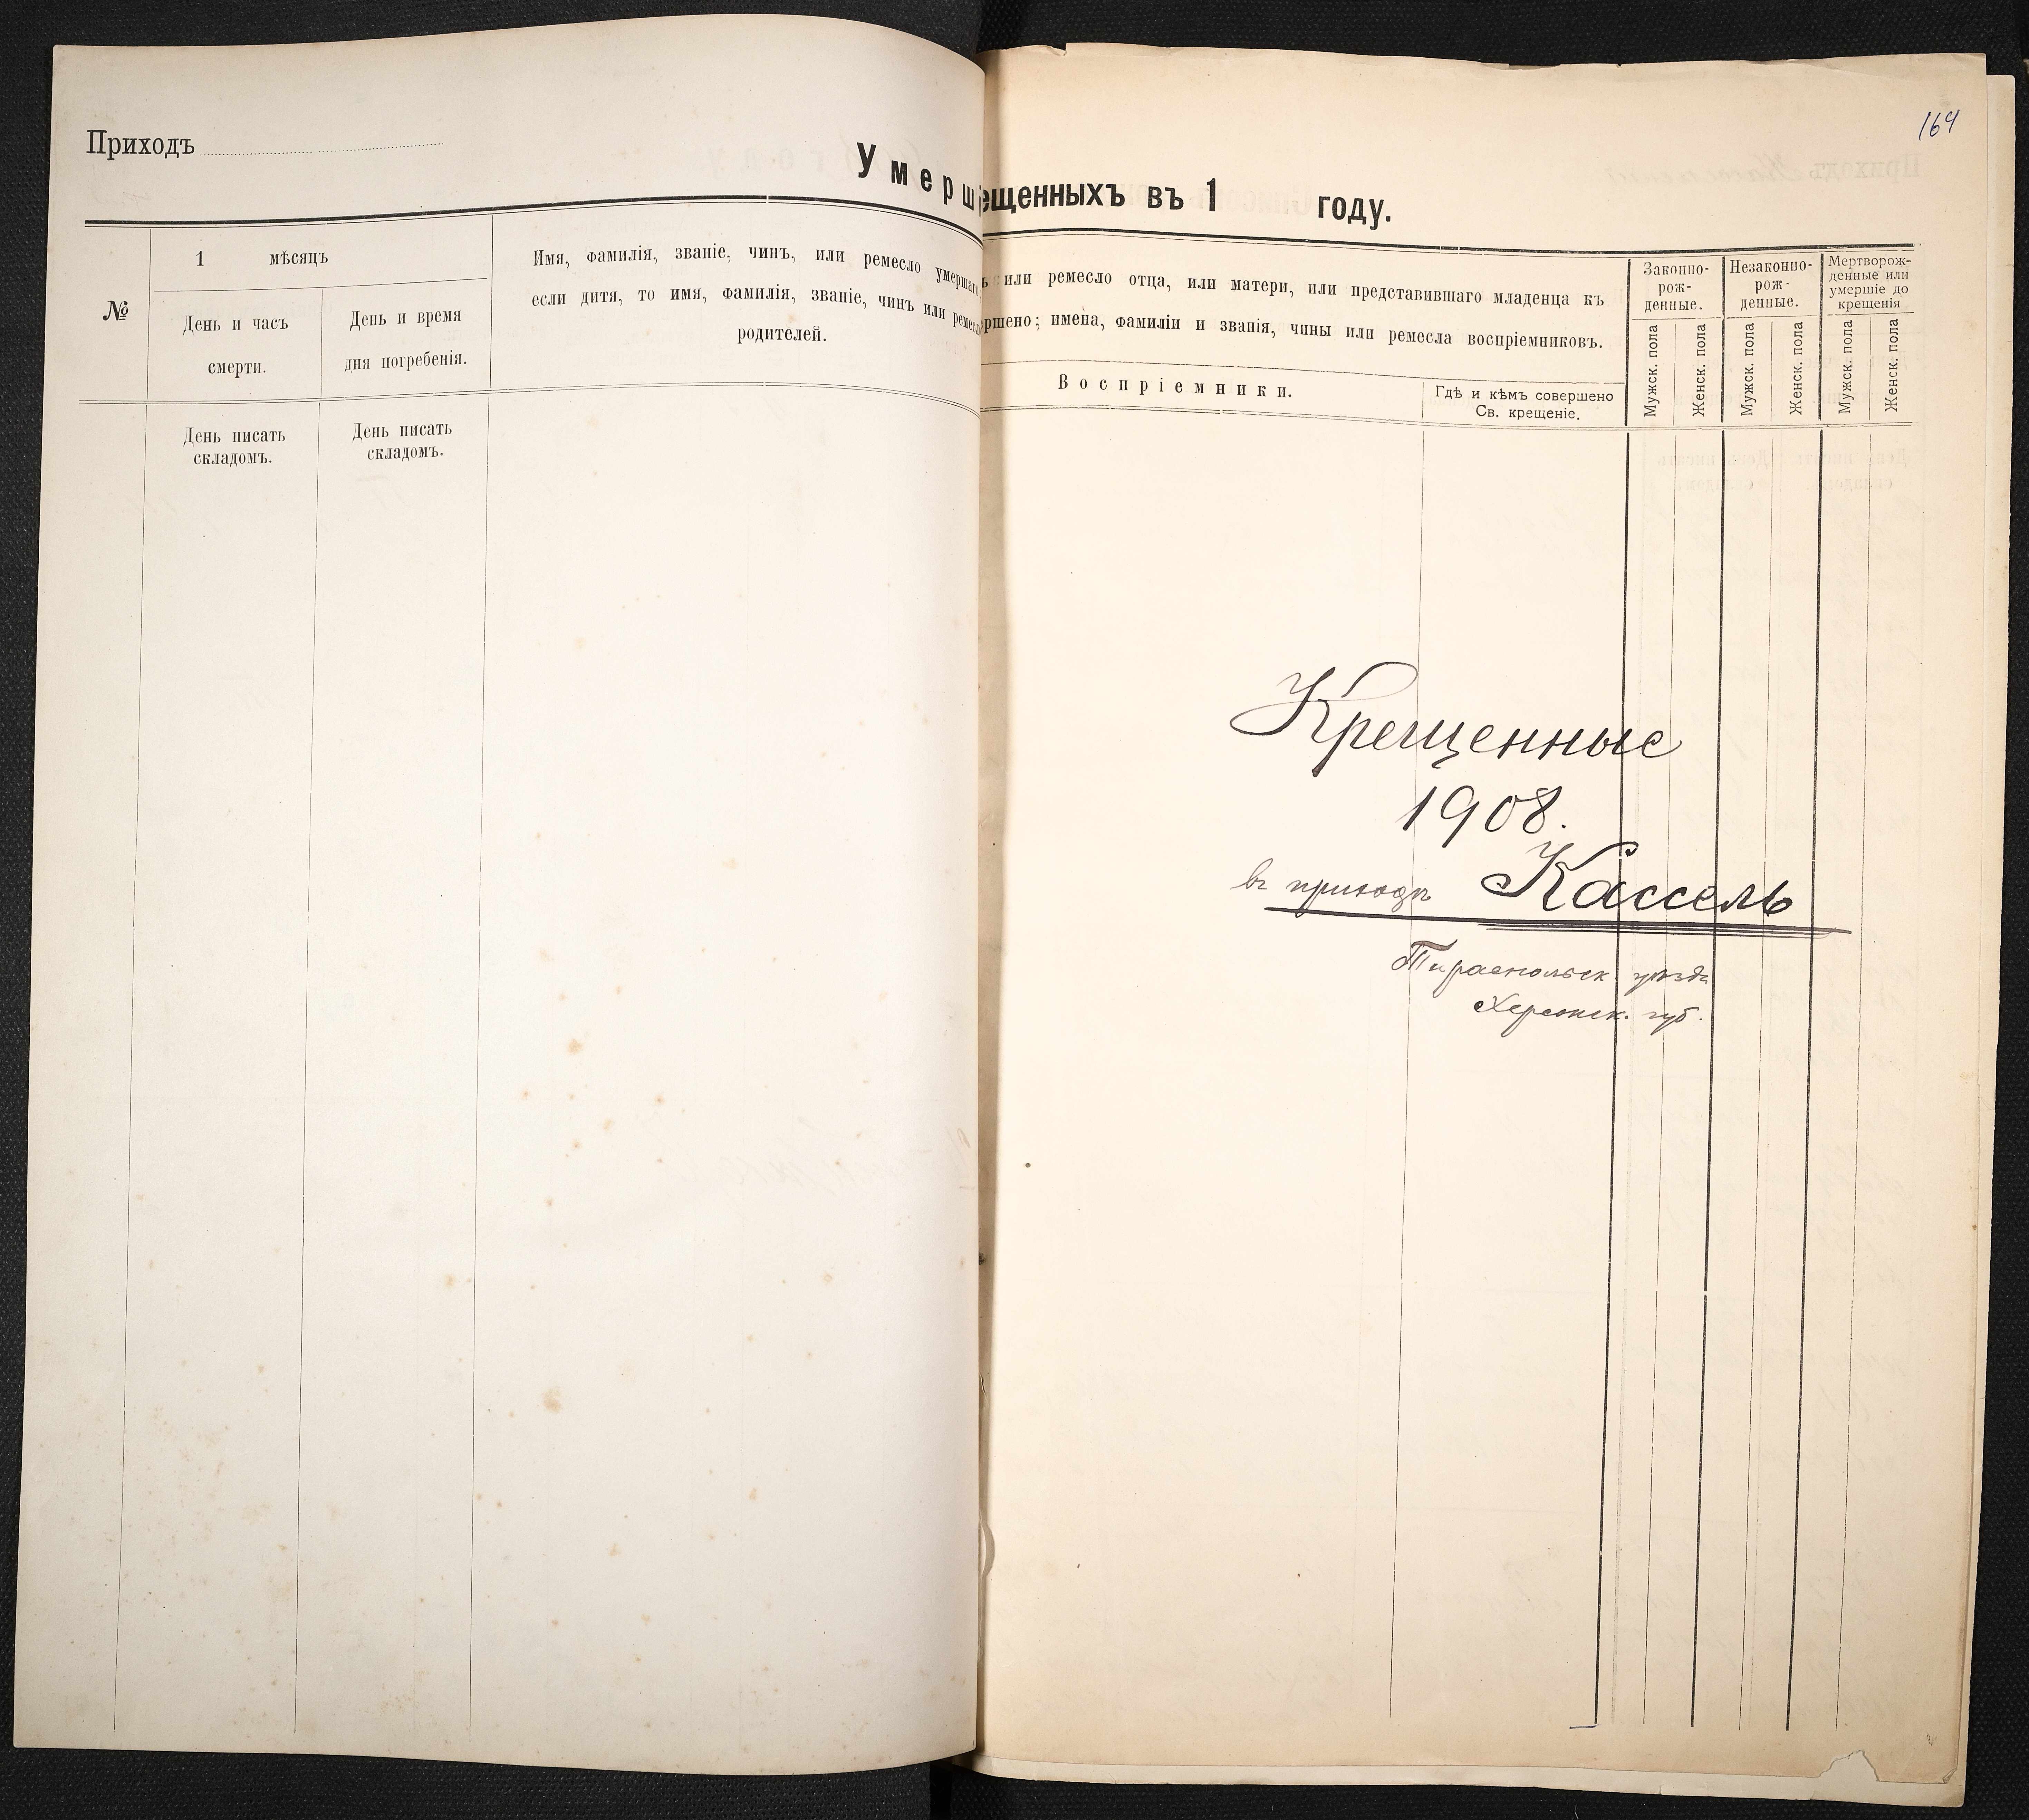 Приходъ
Умерш
№
1 мѣсяцъ
День и часъ
смерти.
День и время
дня погребенія.
Имя, фамилія, званіе, чинъ, или ремесло умершаго;
если дитя, то имя, фамилія, званіе, чинъ или ремесл
родителей.
День писать
складомъ.
День писать
складомъ.
164
ещенныхъ въ 1 году.
ъ или ремесло отца, или матери, или представившаго младенца къ
ершено; имена, фамиліи и званія, чины или ремесла воспріемниковъ.
Воспріемники.
Гдѣ и кѣмъ совершено
Св. крещеніе.
Законно-
рож-
денные.
Незаконно-
рож-
денные.
Мертворож-
денные или
умершіе до
крещенія
Мужск. пола
Женск. пола
Мужск. пола
Женск. пола
Мужск. пола
Женск. пола
Крещенные
1908.
въ приходѣ Кассель
Тираспольск. уѣзда
Херсонск. губ.